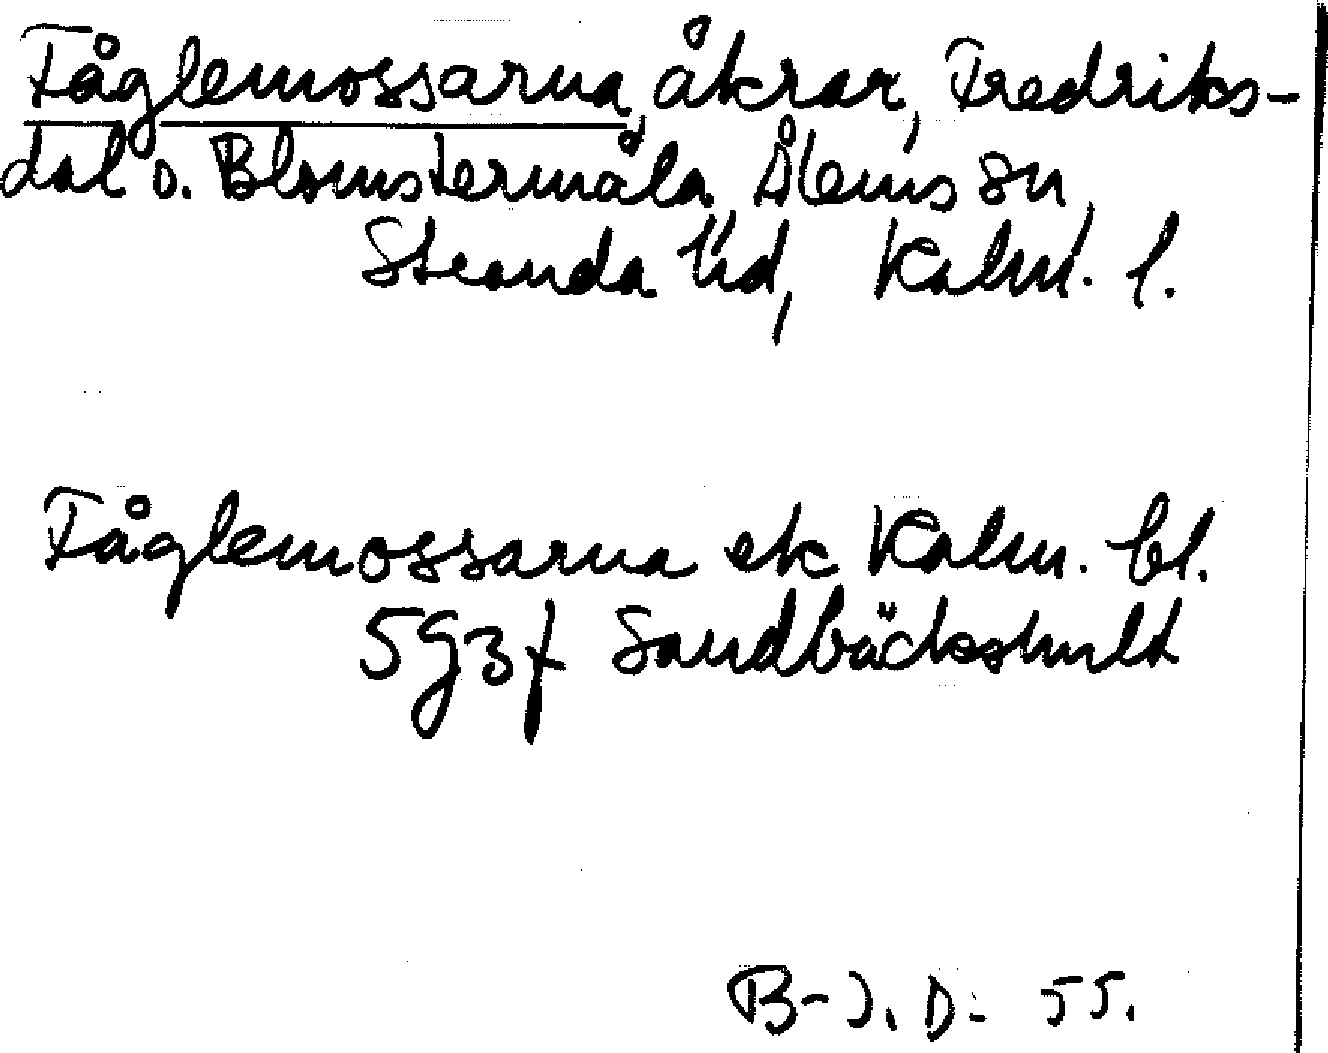 Fåglemossarna, åkrar, Fredriks-
dal o. Blomstermåla, Ålems sn,
Stranda hd, Kalm. l.
Fåglemossarna ek Kalm. bl.
5G3f Sandbäckshult
B-J. D- 55.